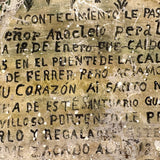 ACONTECIMIENTO LE PA
eñor Anacleto Pera
12 de Enero que CAID
AS EN EL PUENTE DE LA CAL
DE FERRER PERO ACLAM
U CORAZON AL SANTO N
HA DE ESTE SANTUARIO QU
VILLOSO PORTEN
RLO Y REGALA
SACADO AL